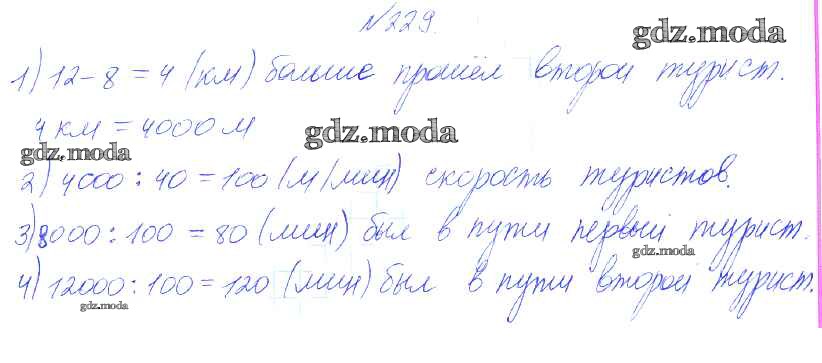 №229.
gdz.moda
1) 12-8=4 (км) больше прошёл второй турист.
4 км = 4000 м
gdz.moda
gdz.moda
2) 4000:40=100 (м/мин) скорость туристов.
3) 8000:100=80 (мин) был в пути первый турист.
gdz.moda
4) 12000:100=120 (мин) был в пути второй турист.
gdz.moda
gdz.moda